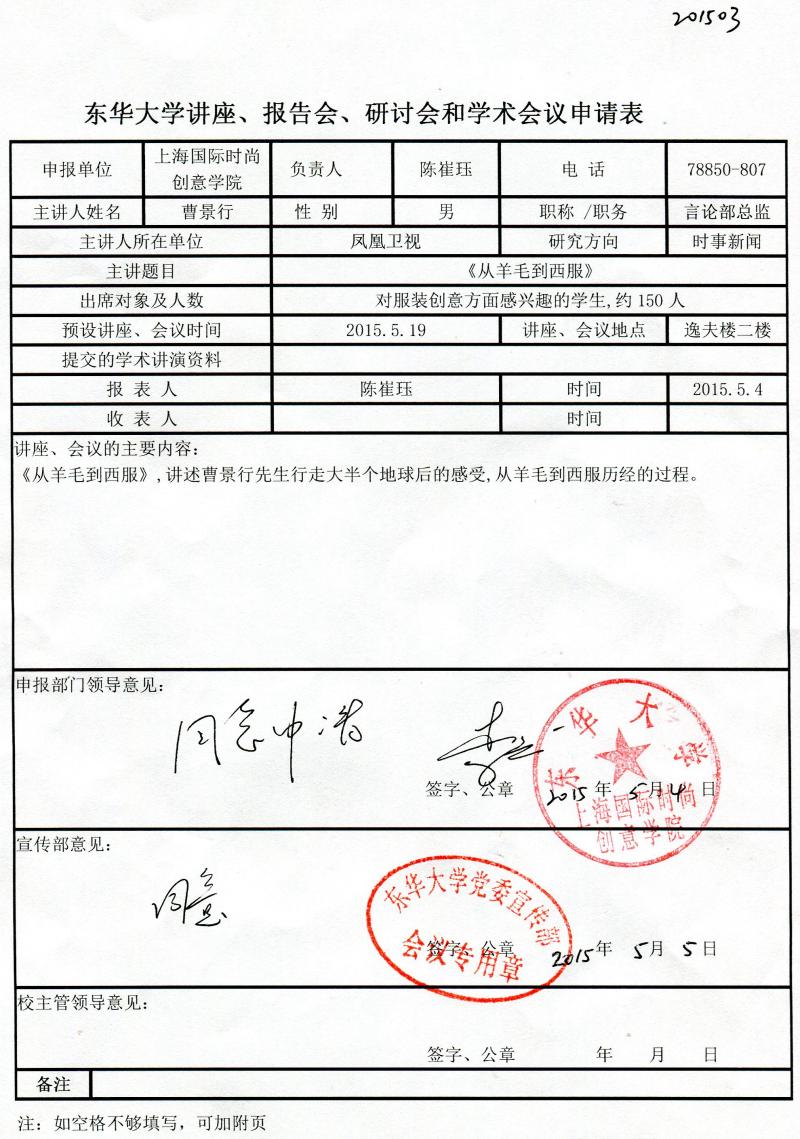 201503
东华大学讲座、报告会、研讨会和学术会议申请表
申报单位 上海国际时尚创意学院 负责人 陈崔珏 电 话 78850-807
主讲人姓名 曹景行 性 别 男 职称 /职务 言论部总监
主讲人所在单位 凤凰卫视 研究方向 时事新闻
主讲题目 《从羊毛到西服》
出席对象及人数 对服装创意方面感兴趣的学生,约 150 人
预设讲座、会议时间 2015.5.19 讲座、会议地点 逸夫楼二楼
提交的学术讲演资料
报 表 人 陈崔珏 时间 2015.5.4
收 表 人 时间
讲座、会议的主要内容:
《从羊毛到西服》,讲述曹景行先生行走大半个地球后的感受,从羊毛到西服历经的过程。
申报部门领导意见:
同意申请
东华大学
上海国际时尚
创意学院
签字、公章 2015 年 5 月 4 日
宣传部意见:
同意
东华大学党委宣传部
会议专用章
签字、公章 2015 年 5 月 5 日
校主管领导意见:
签字、公章 年 月 日
备注
注: 如空格不够填写, 可加附页